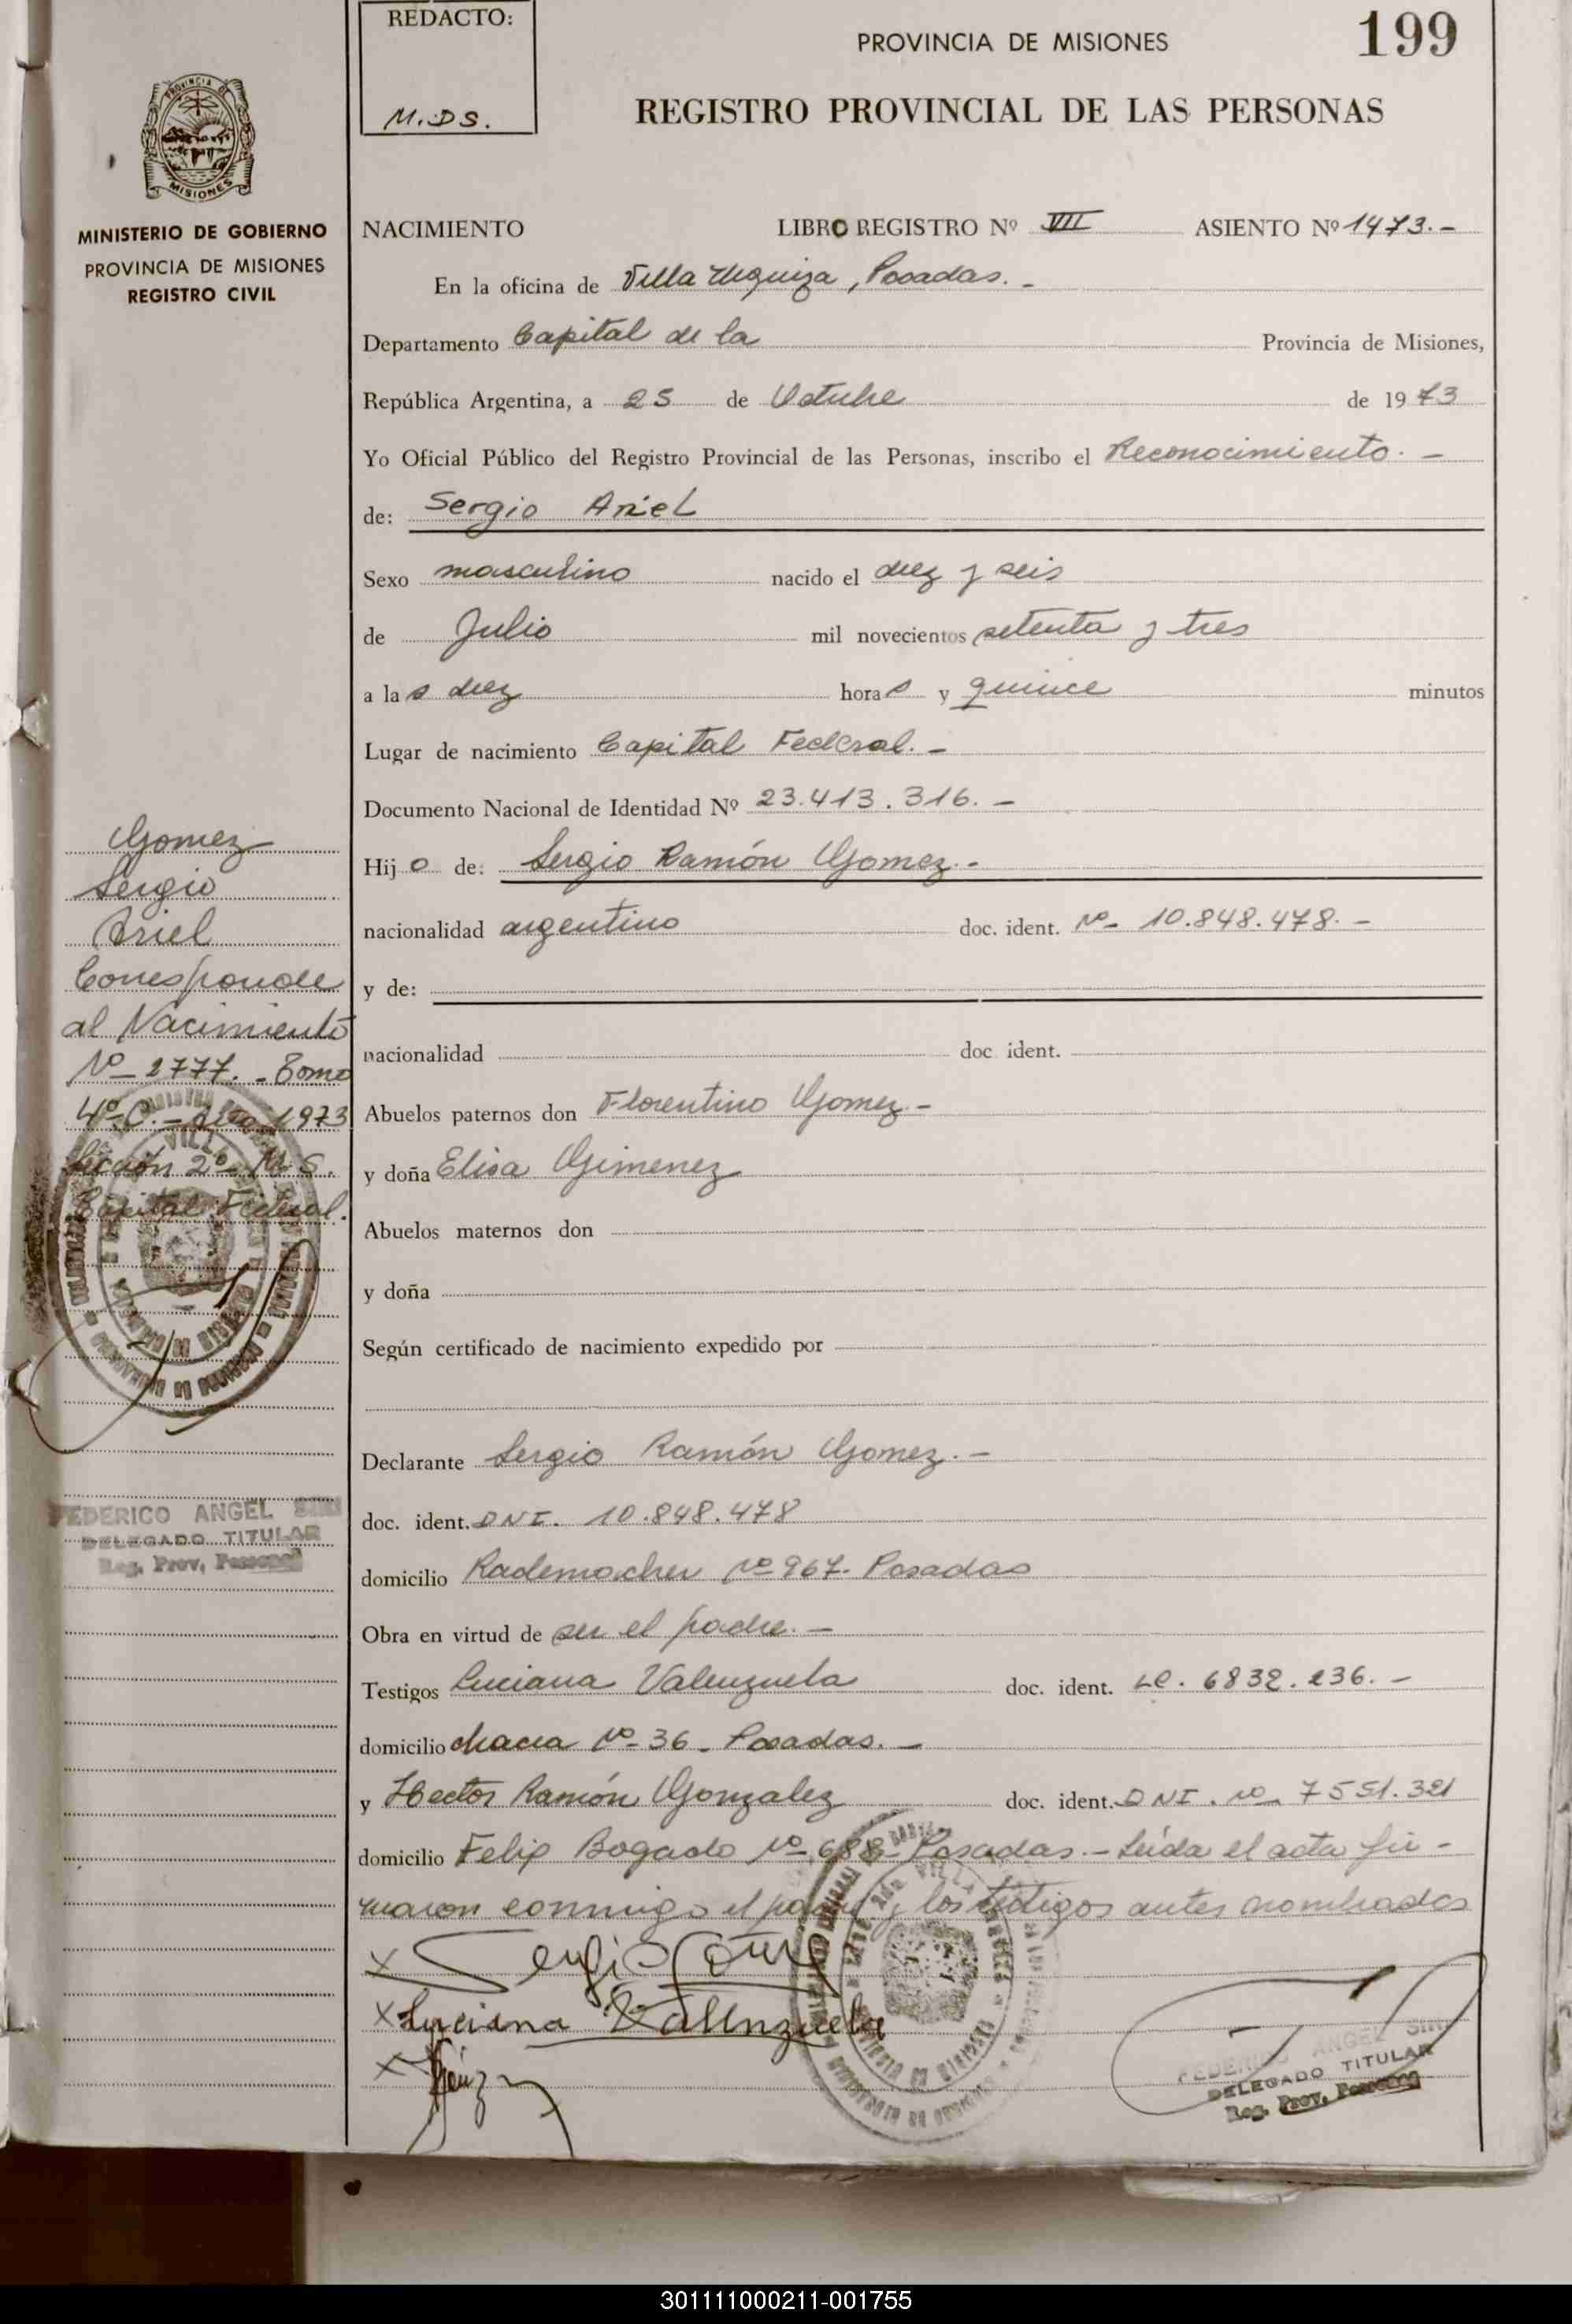 REDACTO:
M.DS.
PROVINCIA DE MISIONES
199
REGISTRO PROVINCIAL DE LAS PERSONAS
PROVINCIA DE
MISIONES
MINISTERIO DE GOBIERNO
PROVINCIA DE MISIONES
REGISTRO CIVIL
NACIMIENTO LIBRO REGISTRO Nº VII ASIENTO Nº 1473.-
En la oficina de Villa Urquiza, Posadas.-
Departamento Capital de la Provincia de Misiones,
República Argentina, a 25 de Octubre de 1973
Yo Oficial Público del Registro Provincial de las Personas, inscribo el Reconocimiento.-
de: Sergio Ariel
Sexo masculino nacido el diez y seis
de Julio mil novecientos setenta y tres
a las diez horas y quince minutos
Lugar de nacimiento Capital Federal.-
Documento Nacional de Identidad Nº 23.413.316.-
Hijo de: Sergio Ramón Gomez.-
nacionalidad argentino doc. ident. Nº 10.848.478.-
y de:
nacionalidad doc ident.
Abuelos paternos don Florentino Gomez.-
y doña Elisa Gimenez
Abuelos maternos don
y doña
Según certificado de nacimiento expedido por
Declarante Sergio Ramón Gomez.-
doc. ident. DNI. 10.848.478
domicilio Rademacher Nº 967- Posadas
Obra en virtud de ser el padre.-
Testigos Luciana Valenzuela doc. ident. LC. 6832.236.-
domicilio chacra Nº 36- Posadas.-
y Hector Ramón Gonzalez doc. ident. DNI. Nº 7551.321
domicilio Felix Bogado Nº 688- Posadas.- Leida el acta fir-
maron conmigo el padre y los testigos antes nombrados
x Sergio
x Luciana Valenzuela
x
Gomez
Sergio
Ariel
Corresponde
al Nacimiento
Nº 2777.- Tomo
4º C.- Año 1973
Sección 2º
Capital Federal.
FEDERICO ANGEL
DELEGADO TITULAR
Reg. Prov. Personas
FEDERICO ANGEL
DELEGADO TITULAR
Reg. Prov. Personas
301111000211-001755